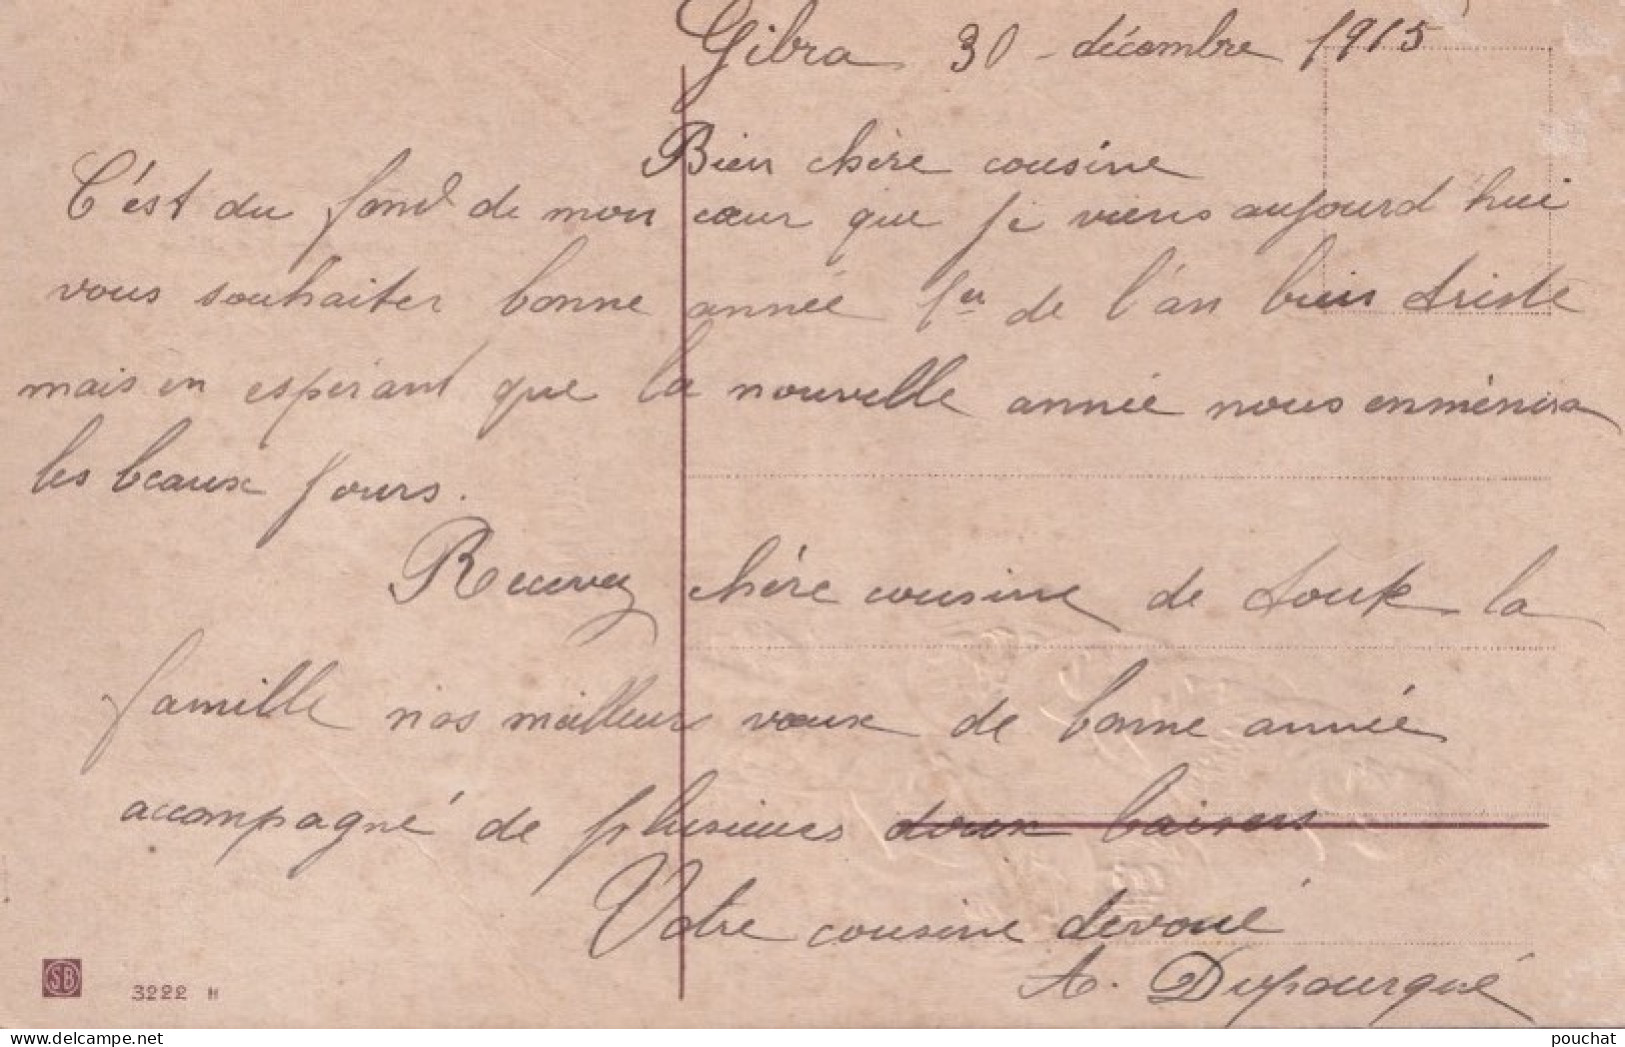 Gibra 30 - décembre 1915
Bien chère cousine
C'est du fond de mon cœur que je viens aujourd hui
vous souhaiter bonne année 1er de l'an bien triste
mais en espérant que la nouvelle année nous enmènera
les beaux jours.
Recevez chère cousine de toute la
famille nos meilleurs vœux de bonne année
accompagné de plusieurs doux baisers
Votre cousine dévoué
A. Dupourqué
SB
3222 H
pouchat